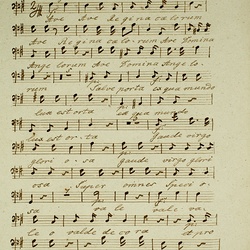 Ave Ave Regina calorum
Ave Regina calorum Ave Domina
Angelorum Ave Domina Angelo
rum Salve porta ex qua mundo
lux est orta ex qua mundo
lux est orta Gaude virgo
glori o sa gaude virgo glori
osa Super omnes Speci o
sa vale vale va
le o valde decora et pro